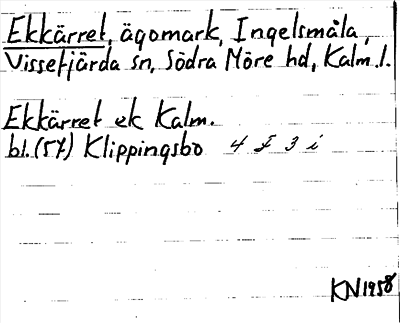 Ekkärret, ägomark, Ingelsmåla,
Vissefjärda sn, Södra Möre hd, Kalm.l.
Ekkärret ek Kalm.
bl.(57) Klippingsbo 4 F 3 i
KN1958